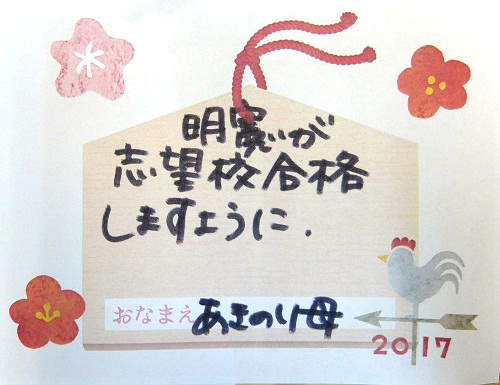 明寛が
志望校合格
しますように.
おなまえ あきのり母
2017